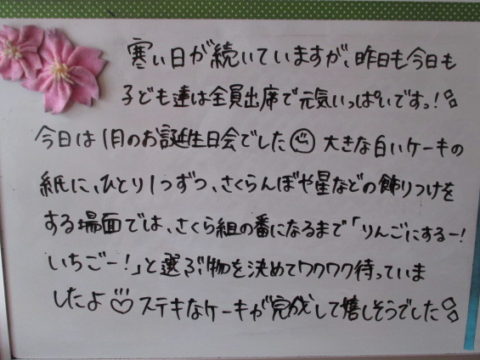 寒い日が続いていますが、昨日も今日も
子ども達は全員出席で元気いっぱいですっ!
今日は1月のお誕生日会でした 大きな白いケーキの
紙に、ひとり1つずつ、さくらんぼや星などの飾りつけを
する場面では、さくら組の番になるまで「りんごにするー!
いちごー!」と選ぶ物を決めてワクワク待っていま
したよ ステキなケーキが完成して嬉しそうでした